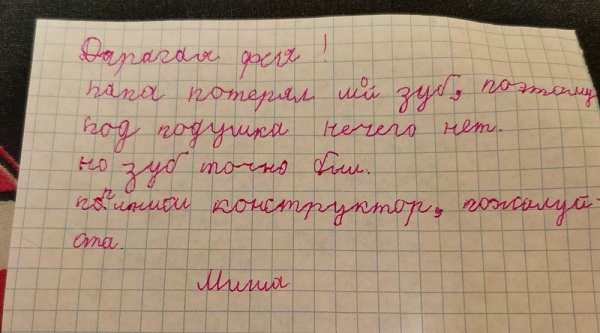 Дарагая фея!
папа потерял мой зуб, поэтому
под подушка нечего нет.
но зуб точно был.
конструктор, пожалуй-
ста.
Миша